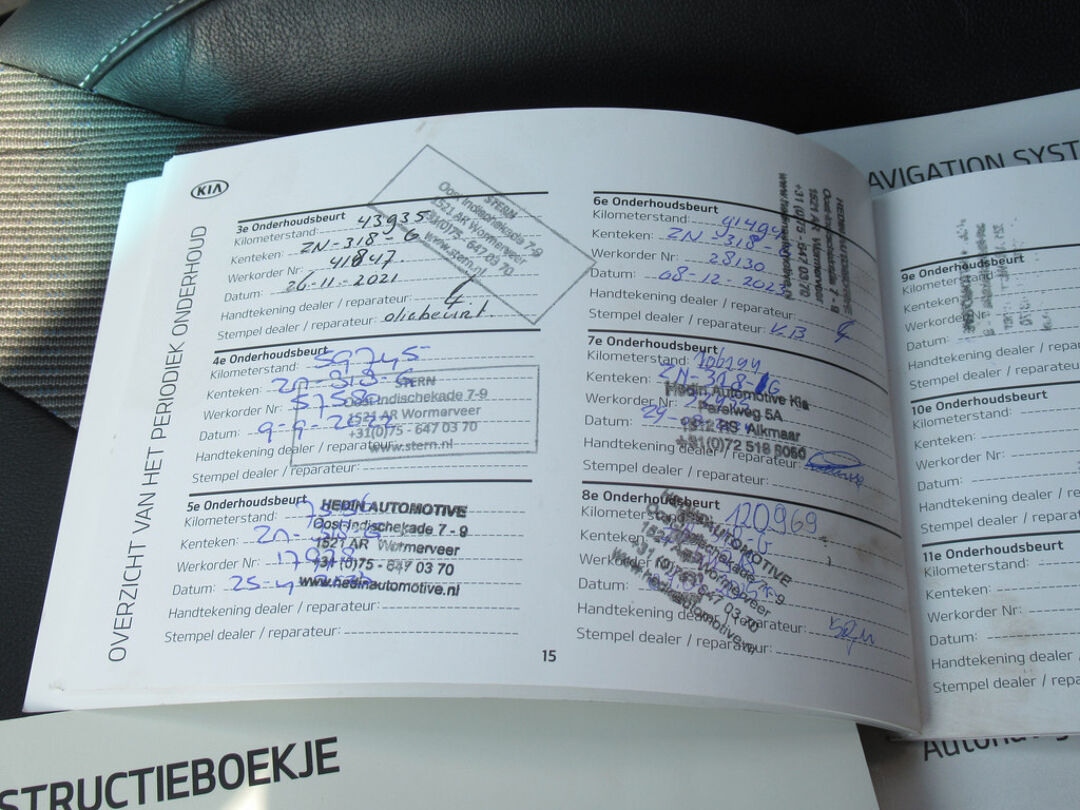 KIA
OVERZICHT VAN HET PERIODIEK ONDERHOUD
3e Onderhoudsbeurt
Kilometerstand: 43935
Kenteken: ZN-318-G
Werkorder Nr: 41847
Datum: 26-11-2021
Handtekening dealer / reparateur:
Stempel dealer / reparateur: oliebeurt
STERN
Oost Indischekade 7-9
1521 AR Wormerveer
+31(0)75 - 647 03 70
www.stern.nl
4e Onderhoudsbeurt
Kilometerstand: 59745
Kenteken: ZN-318-G
Werkorder Nr: 57580
Datum: 9-9-2022
Handtekening dealer / reparateur:
Stempel dealer / reparateur:
STERN
Oost Indischekade 7-9
1521 AR Wormerveer
+31(0)75 - 647 03 70
www.stern.nl
5e Onderhoudsbeurt
Kilometerstand:
Kenteken: ZN-318-G
Werkorder Nr:
Datum: 25-4
Handtekening dealer / reparateur:
Stempel dealer / reparateur:
HEDIN AUTOMOTIVE
Oost-Indischekade 7 - 9
1521 AR Wormerveer
+31 (0)75 - 647 03 70
www.hedinautomotive.nl
6e Onderhoudsbeurt
Kilometerstand:
Kenteken: ZN-318-
Werkorder Nr: 28130
Datum: 08-12-2023
Handtekening dealer / reparateur:
Stempel dealer / reparateur: KB
HEDIN AUTOMOTIVE
Oost-Indischekade 7 - 9
1521 AR Wormerveer
+31 (0)75 - 647 03 70
www.hedinautomotive.nl
7e Onderhoudsbeurt
Kilometerstand:
Kenteken: ZN-318-G
Werkorder Nr:
Datum: 29
Handtekening dealer / reparateur:
Stempel dealer / reparateur:
Hedin Automotive Kia
Parelweg 5A
1812 RS Alkmaar
+31(0)72 518 5050
8e Onderhoudsbeurt
Kilometerstand: 120969
Kenteken:
Werkorder
Datum:
Handtekening dealer / reparateur:
Stempel dealer / reparateur:
AUTOMOTIVE
Oost-Indischekade 7 - 9
1521 AR Wormerveer
+31 (0)75 - 647 03 70
15
AVIGATION SYST
9e Onderhoudsbeurt
Kilometerstand:
Kenteken:
Werkorder
Datum:
Handtekening dealer /
Stempel dealer / repara
10e Onderhoudsbeurt
Kilometerstand:
Kenteken:
Werkorder Nr:
Datum:
Handtekening dealer /
Stempel dealer / repara
11e Onderhoudsbeurt
Kilometerstand:
Kenteken:
Werkorder Nr:
Datum:
Handtekening dealer /
Stempel dealer / repa
STRUCTIEBOEKJE